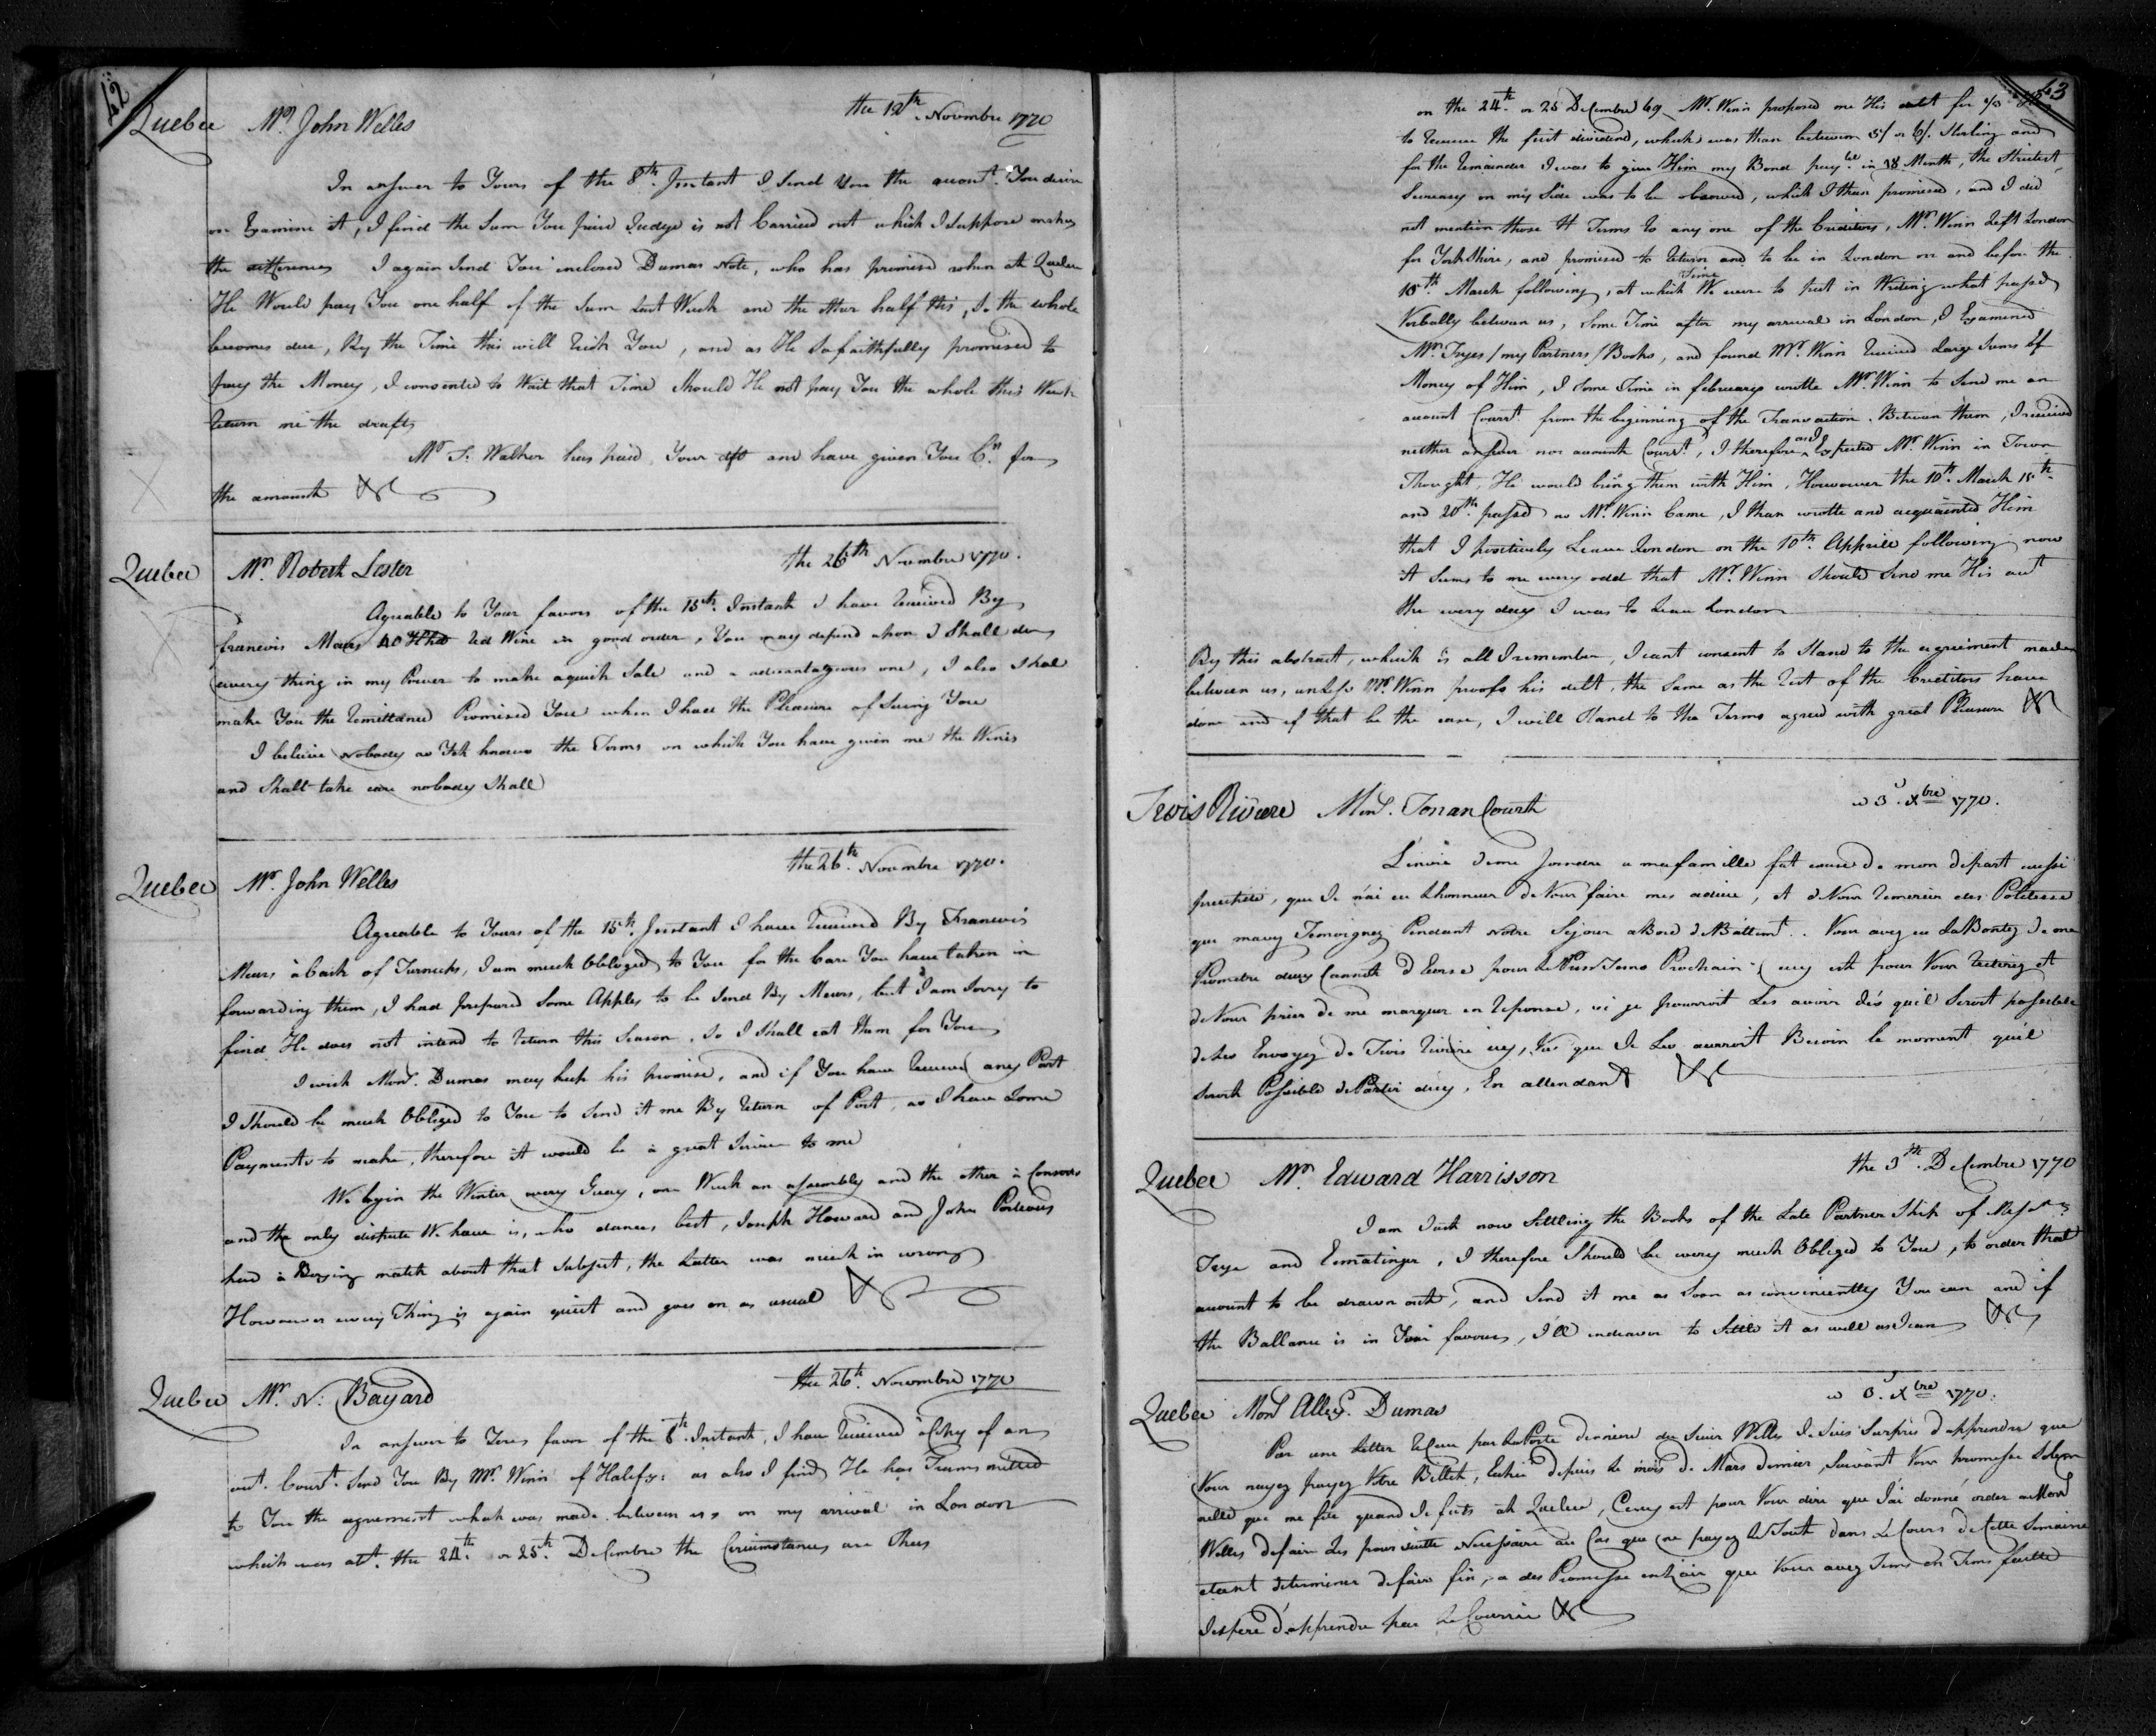 42
Quebec Mr. John Welles the 12th. Novembre 1770
In answer to Yours of the 8th. Instant I Send You the acount. You desire
on Examine it, I find the Sum You paid Judge is not Carried out which I Suppose makes
the differences I again Send You inclosed Dumas Note, who has promised when at Quebec
He Would pay You one half of the Sum Last Week and the other half this, So the whole
becomes due, By the Time this will Rich You, and as He So faithfully promised to
pay the Money, I consented to Wait that Time Should He not pay You the whole this Week
Return me the draft
Mr T. Walker has paid Your dft and have given You Cr. for
the amount &c
Quebec Mr. Robert Lester the 26th Novembre 1770.
Agreable to Your favors of the 15th. Instant I have Received By
francois Meurs 40 Hhd Red Wine in good order, You may depend upon I Shall do
every thing in my Power to make a quick Sale and a advantageous one, I also Shal
make You the Remittance Promised You when I had the Pleasure of Seeing You
I believe Nobody as Yet knows the Terms on which You have given me the Wines
and Shall take care nobody Shall
Quebec Mr. John Welles the 26th. Novembre 1770.
Agreable to Yours of the 15th. Instant I have Received By Francois
Meurs à Cask of Turneps, I am much Obbliged to You for the Care You have taken in
forwarding them, I had prepared Some Apples to be Send By Meurs, but I am Sorry to
find He does not intend to Return this Season. So I Shall eat them for You
I wich Monsr. Dumas may keep his promise, and if You have Received any Part
I Should be much Obbliged to You to Send it me By Return of Post, as I have Some
Payments to make, therefore it would be à great Service to me
We begin the Winter very Guay, one Week an assembly and the other à Consert
and the only dispute We have is, who dances best, Joseph Howard and John Porteous
had à Boxing match about that Subject, the Latter was much in wrong
Howoever every Thing is again quiet and goes on as usual &c
Quebec Mr. N: Bayard the 26th. Novembre 1770
In answer to Your favor of the 8th. Instant, I have Received à Copy of an
act. Courat. Send You By Mr. Winn of Halifx: as also I find He has Transmitted
to You the agreement what was made between us on my arrival in London
which was abt. the 24th. or 25th. DeCembre the Circumstances are Thus
43
on the 24th. or 25 DeCembre 69 Mr. Winn proposed me His debt for
to Receive the first dividend, which was than between 5/ or 6/. Sterling and
for the Remainder I was to give Him my Bond payble in 18 Month, the Strictest
Secrecy on my Side was to be observed, which I than promised, and I did
not mention those 4 Terms to any one of the Creditors, Mr. Winn Left London
for YorkShire, and promised to Return and to be in London on and before the
10th. March following, at which Time We were to put in Writing what passed
Verbally between us, Some Time after my arrival in London, I Examined
Mr. Tryes / my Partners / Books, and found Mr. Winn Received Large Sums of
Money of Him, I Some Time in february wrotte Mr. Winn to Send me an
acount Courat. from the beginning of the Transaction Between them, I received
neither answer nor acount Courat., I therefore and Expected Mr. Winn in Town
Thought, He would bring them with Him, Howoever the 10th. March 15th.
and 20th. passed no Mr. Winn Came, I than wrotte and acquainted Him
that I positively Leave London on the 10th. Apprill following now
it Seems to me very odd that Mr. Winn Should Send me His act
the very day I was to Leave London
By this abstract, which is all I remember, I cant consent to Stand to the agriement made
between us, unless Mr. Winn proofs his debt, the Same as the Rest of the Creditors have
done and if that be the case, I will Stand to the Terms agreed with great Pleasure &c
Trois Riviere Monsr. TonanCourt 3. Xbre 1770.
L'envie de me Joindre a ma famille fut cause de mon depart aussi
precitée, que Je n'ai eu Lhonneur de Vous faire mes adieu, et de Vous Remercier des Politesse
que mavez Temoignez Pendant Notre Sejour a Bord de Bâttiment. Vous avez eu La Bontez de me
Promettre deux Cannots d'Ecorse pour Le Printems Prochain Cecy est pour Vous Reiterez et
de Vous prier de me marquer en Reponse, si je pourroit Les avoir dès quil Seroit possible
de Les Envoyez de Trois Riviere icy, Vus que Je Les aurroit Besoin le moment qu'il
Seroit Possible de Partir dicy, En attendant &c
Quebec Mr. Edward Harrisson the 3th. DeCembre 1770
I am Just now Settling the Books of the Late PartnerShip of Messrs
Trye and Ermatinger, I therefore Should be very much Obbliged to You, to order that
acount to be drawn out, and Send it me as Soon as conveniently You can and if
the Ballance is in Your favour, I'll endeavor to Settle it as well as I can &c
Quebec Monsr Allexr. Dumas 3. Xbre 1770.
Par une Letter ReCeue par La Poste derniere du Sieur Welles Je Suis Surpris d'apprendre que
Vous nayez payez Votre Billet, Echue depuis Le mois de Mars dernier, Suivant Vous promesse Solem
nelle que me fite quand Je futs at Quebec, Cecy est pour Vous dire que J'ai donné order a Monsr
Welles de faire Les poursuitte Necessaire au Cas que ne payez Le Tout dans Le Cours de Cette Semaine
etant determiner de faire fin, a des Promesse en L'air que Vous avez Tems en Tems faitte
Jespere d'apprendre par Le Courrier &c